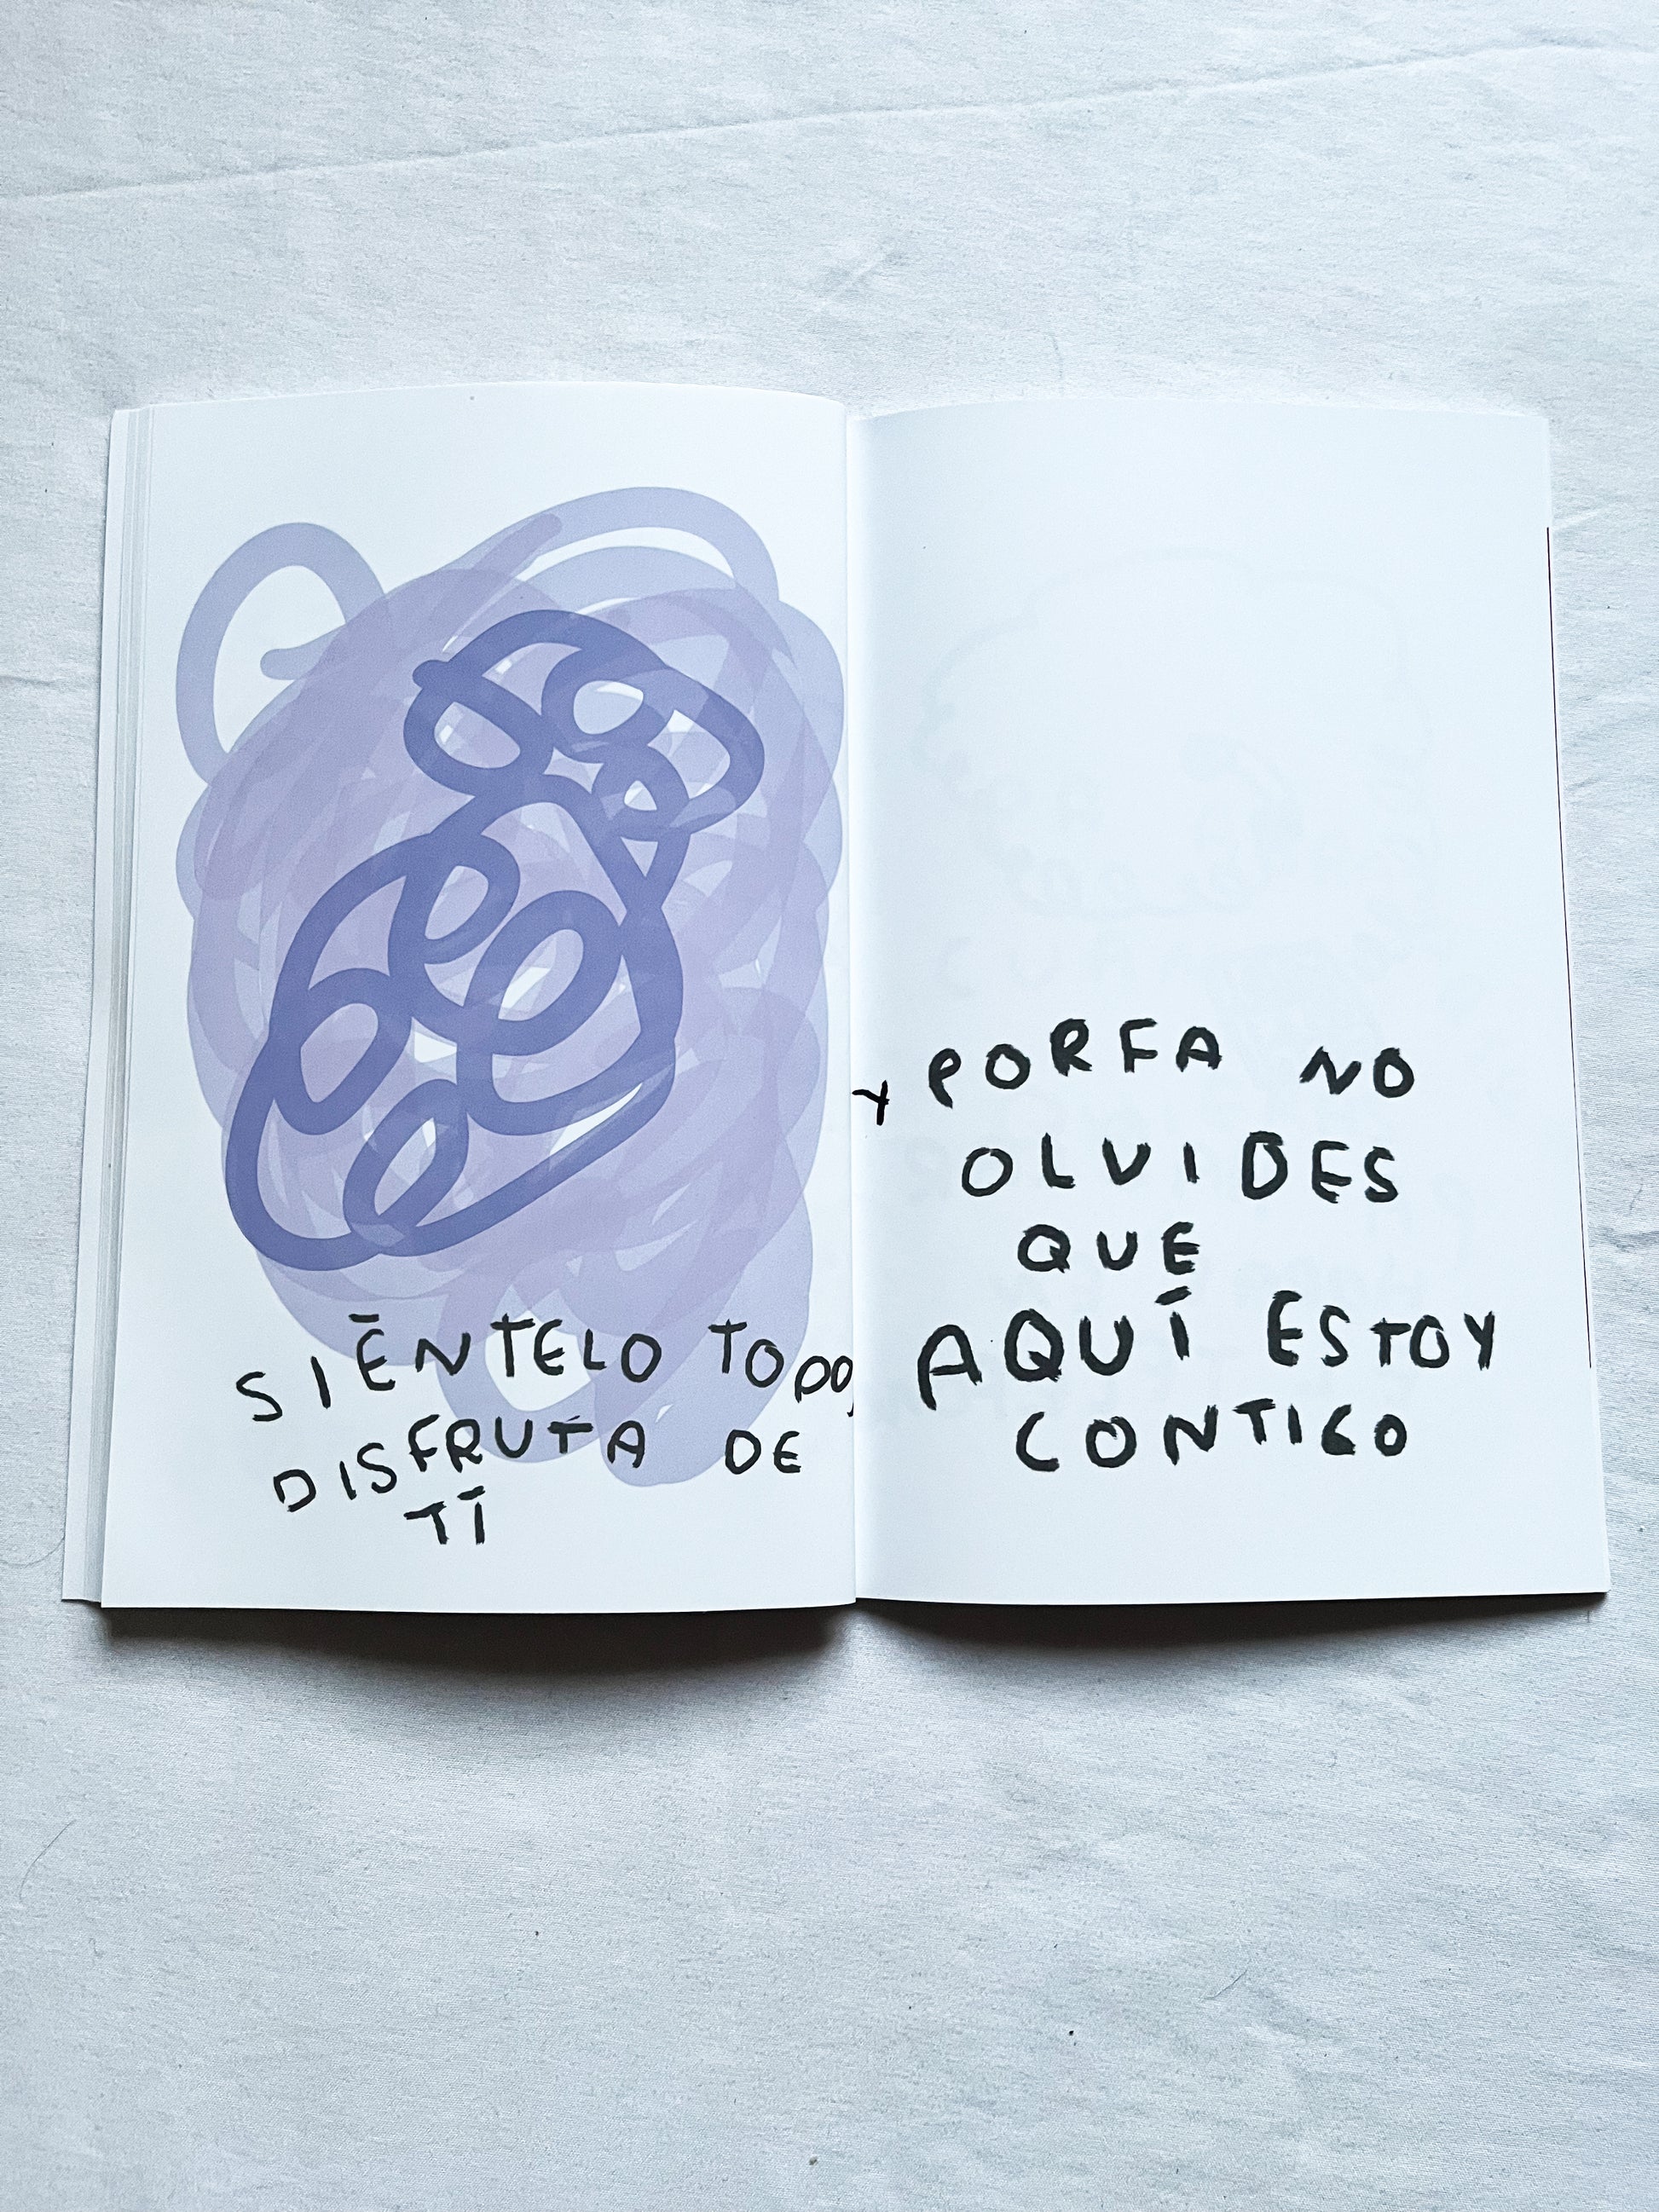 SIÉNTELO TODO,
DISFRUTA DE
TÍ
Y PORFA NO
OLVIDES
QUE
AQUÍ ESTOY
CONTIGO